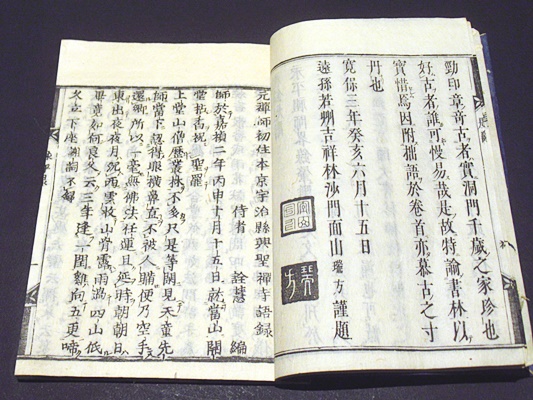 勁印章竒古者實洞門千歳之家珍也
好古者誰可慢易哉是故特諭書林以
寶惜焉因附拙語於卷首亦慕古之寸
丹也
寛保三年癸亥六月十五日
遠孫若州吉祥林沙門面山瑞方謹題
元禪師初住本京宇治縣興聖禪寺語録
侍者 詮慧 編
師於嘉禎二年丙申十月十五日就當山開
堂拈香祝聖罷
上堂山僧歴叢林不多只是等閑見天童先
師當下認得眼横鼻直不被人瞞便乃空手
還郷所以一毫無佛法任運且延時朝朝日
東出夜夜月沈西雲收山骨露雨過四山低
畢竟如何良久云三年逢一閏鷄向五更啼
久立下座謝詞不録